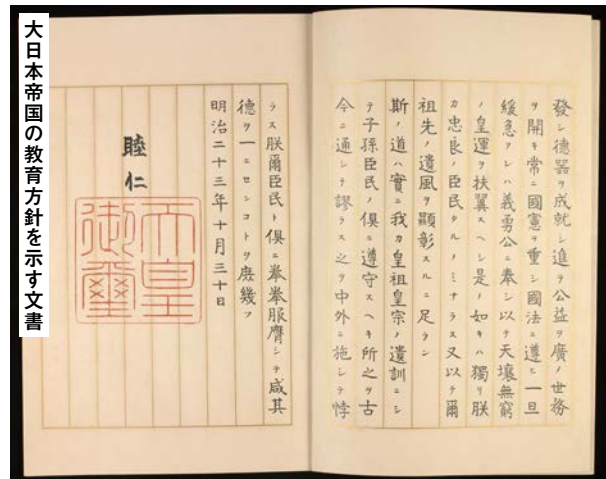 發シ德器ヲ成就シ進テ公益ヲ廣メ世務
ヲ開キ常ニ國憲ヲ重シ國法ニ遵ヒ一旦
緩急アレハ義勇公ニ奉シ以テ天壤無窮
ノ皇運ヲ扶翼スヘシ是ノ如キハ獨リ朕
カ忠良ノ臣民タルノミナラス又以テ爾
祖先ノ遺風ヲ顯彰スルニ足ラン
斯ノ道ハ實ニ我カ皇祖皇宗ノ遺訓ニシ
テ子孫臣民ノ俱ニ遵守スヘキ所之ヲ古
今ニ通シテ謬ラス之ヲ中外ニ施シテ悖
ラス朕爾臣民ト俱ニ拳拳服膺シテ咸其
德ヲ一ニセンコトヲ庶幾フ
明治二十三年十月三十日
睦仁
天皇
御璽
大日本帝国の教育方針を示す文書